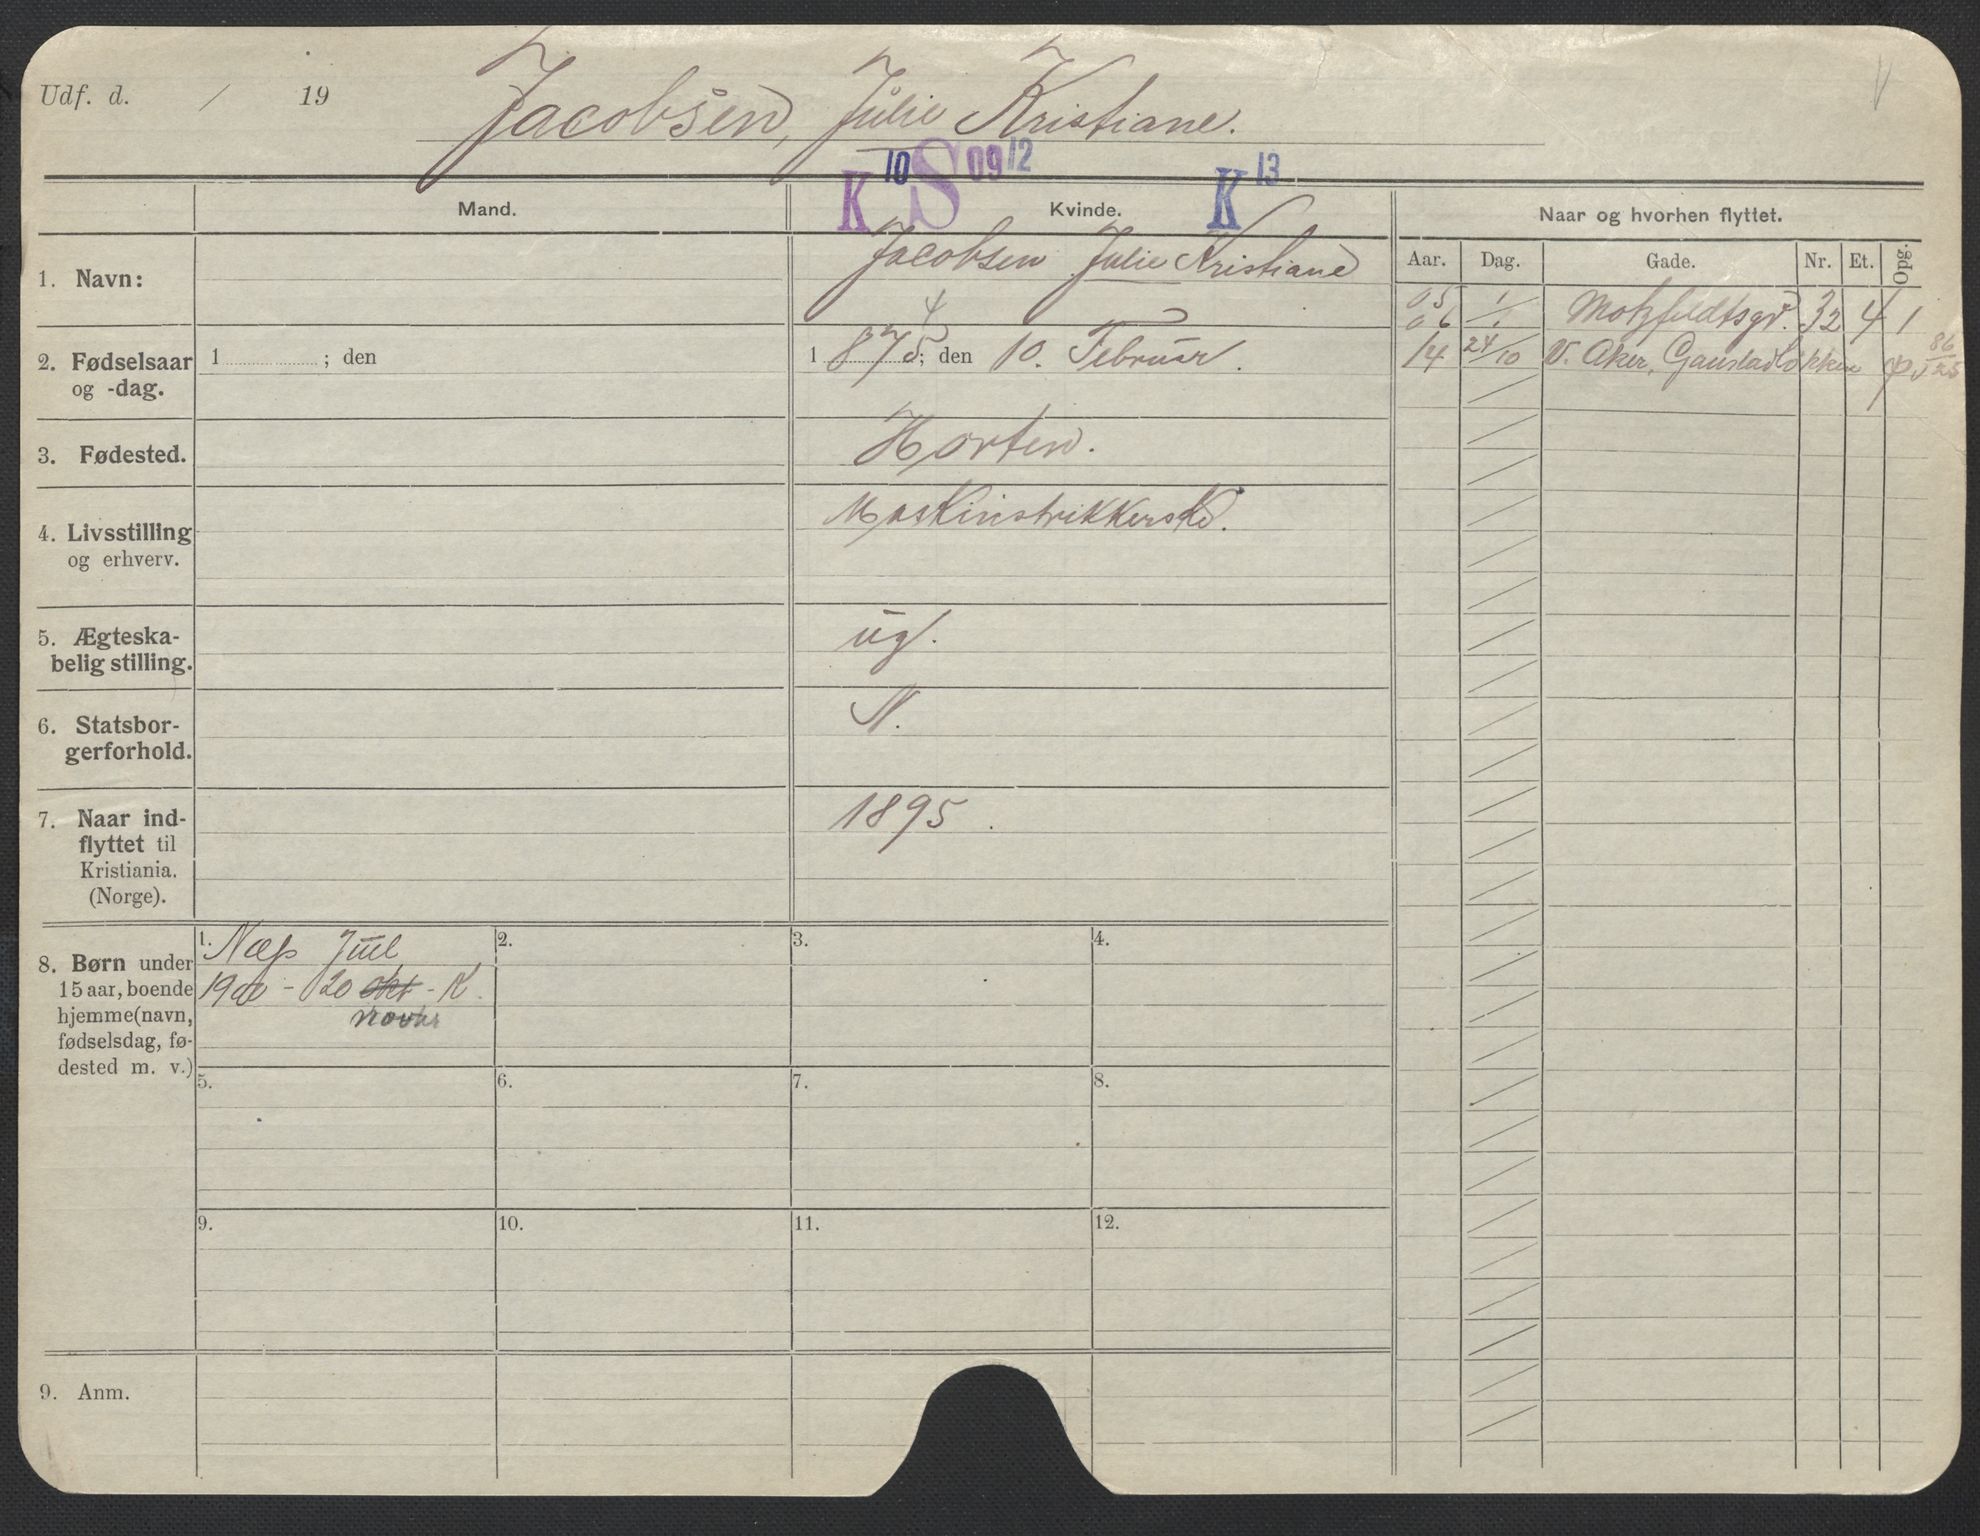 Udf. d. / 19
Jacobsen, Julie Kristiane.
K 10 S 09 12 K 13
Mand.
Kvinde.
Naar og hvorhen flyttet.
1. Navn:
Jacobsen Julie Kristiane
Aar. Dag. Gade. Nr. Et. Opg.
05 1/1 Motzfeldtsgt. 32 4 1
06
14 24/10 V. Aker, Gaustadløkken 86
2. Fødselsaar
og -dag.
1 ; den
4
1 875; den 10. Februar.
3. Fødested.
Horten.
4. Livsstilling
og erhverv.
Maskinstrikkerske.
5. Ægteska-
belig stilling.
ug.
6. Statsbor-
gerforhold.
N.
7. Naar ind-
flyttet til
Kristiania.
(Norge).
1895.
8. Børn under
15 aar, boende
hjemme (navn,
fødselsdag, fø-
dested m. v.)
1. Næss Juel
1900 - 20 okt - K.
novbr
2.
3.
4.
5.
6.
7.
8.
9.
10.
11.
12.
9. Anm.